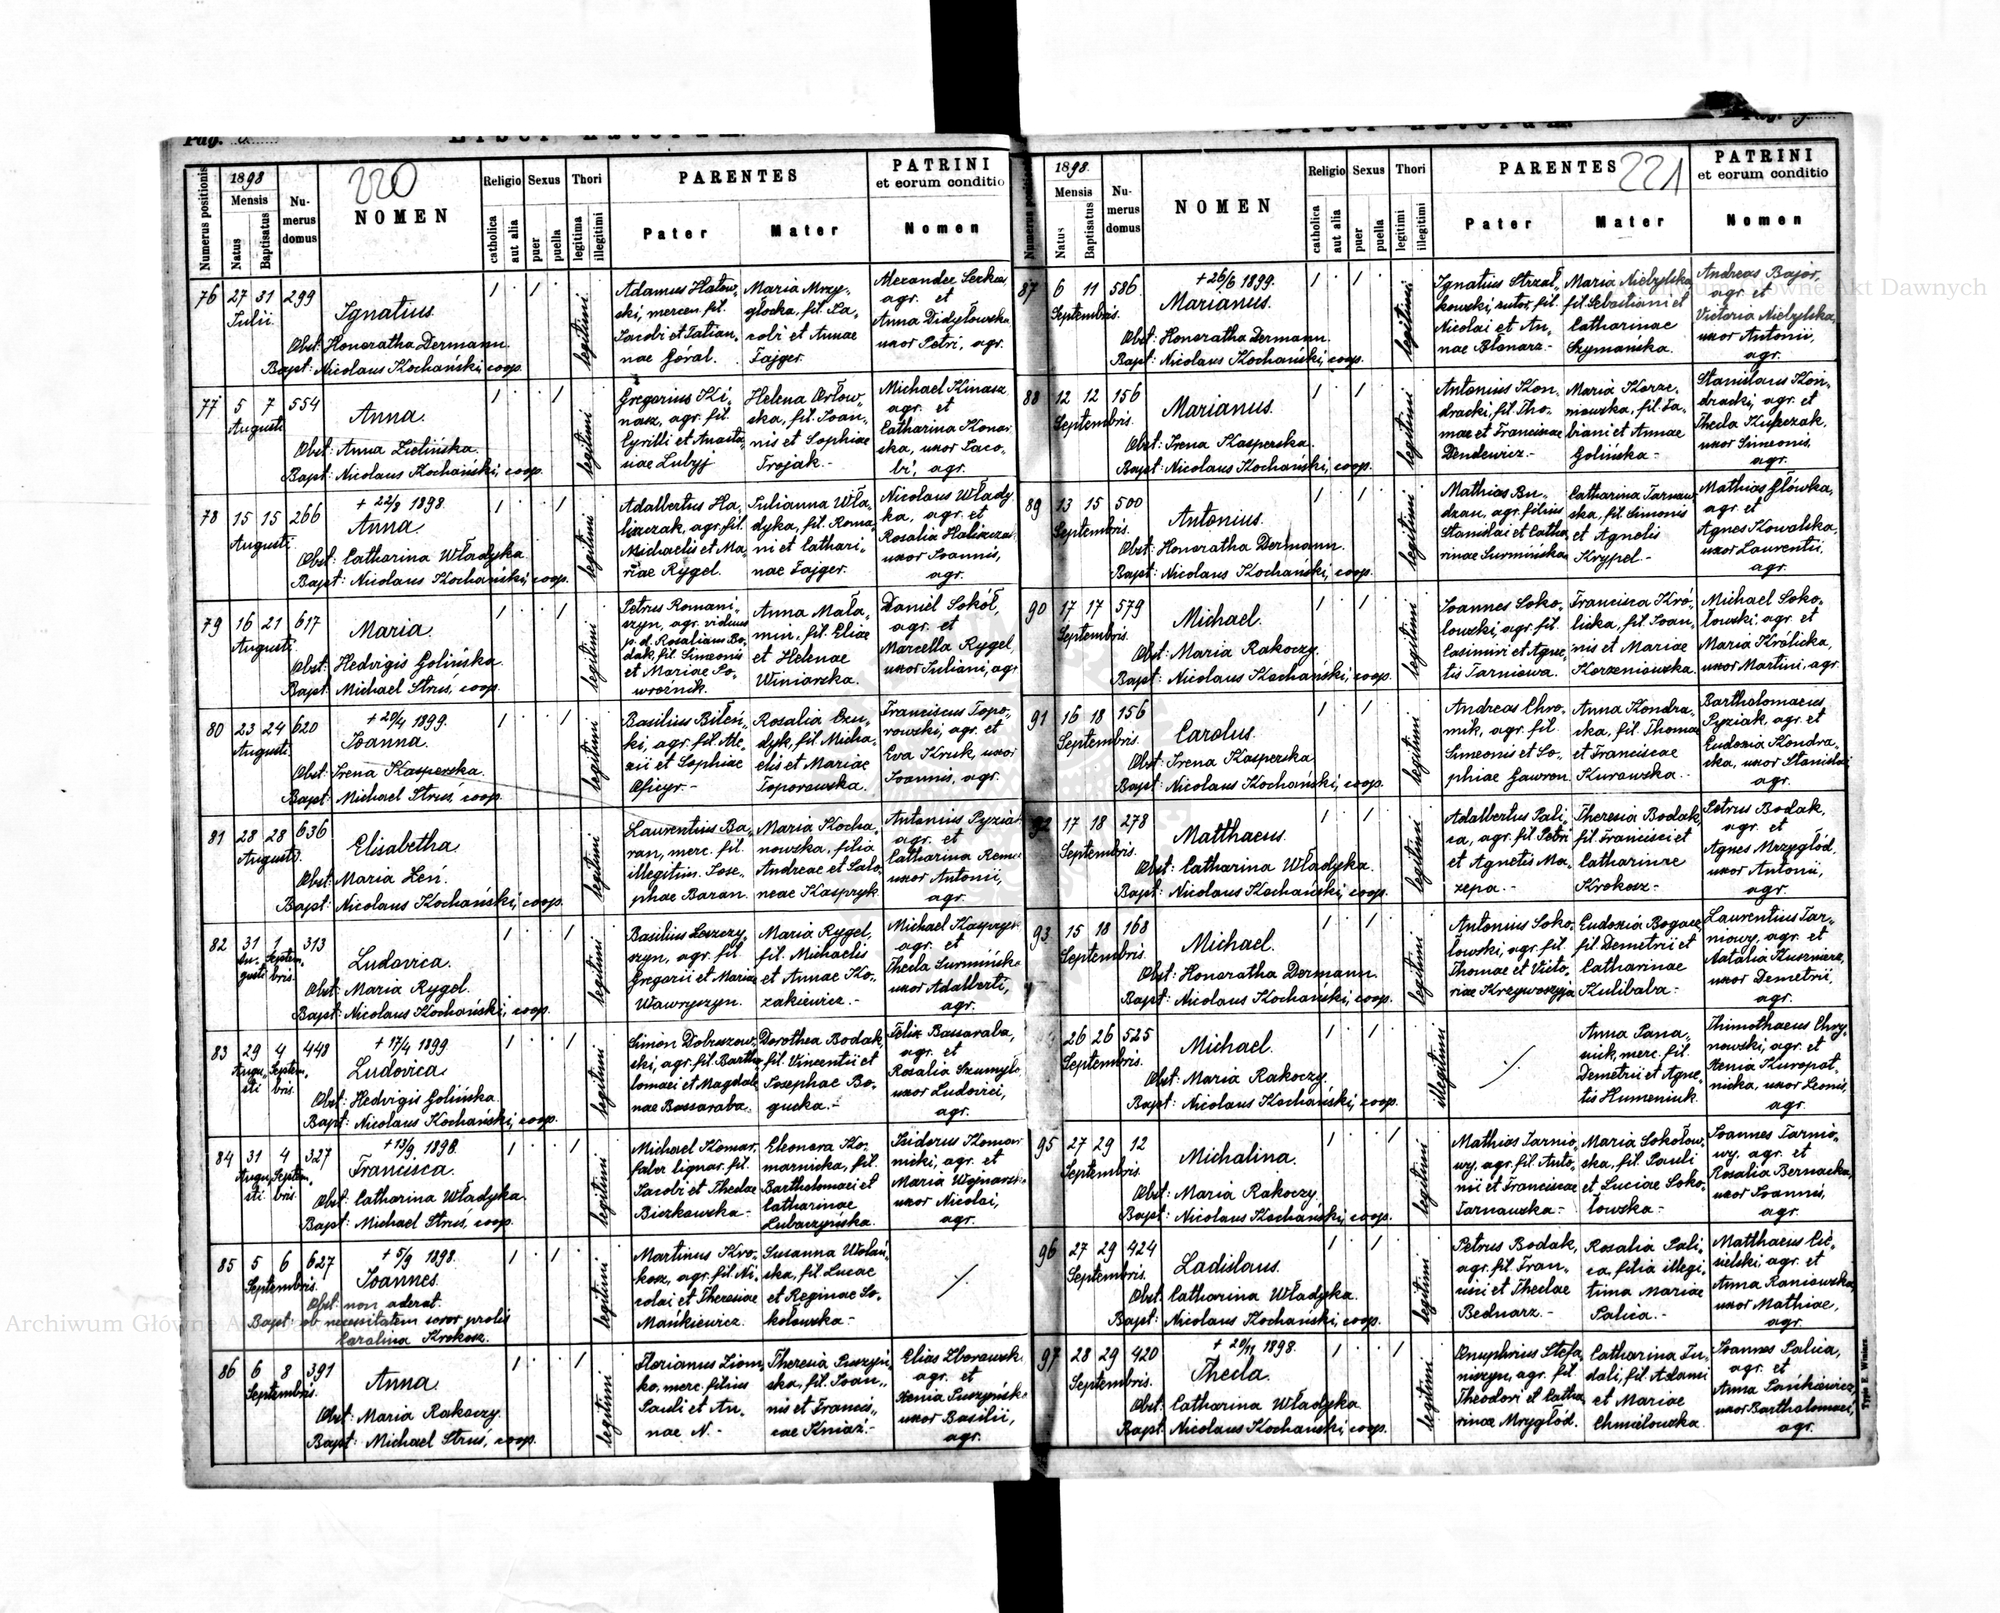 Pag.
Liber Natorum
220
1898
Numerus positionis
Mensis
Natus
Baptisatus
Numerus domus
NOMEN
Religio
catholica
aut alia
Sexus
puer
puella
Thori
legitima
illegitimi
PARENTES
Pater
Mater
PATRINI
et eorum conditio
Nomen
76 27 31 299
Julii
Ignatius.
Obst: Honoratha Dermann.
Bapt: Nicolaus Kochański, coop.
legitimi
Adamus Hałow-
ski, mercen. fil.
Jacobi et Tatian-
nae Goral.
Maria Mrzy-
głocka, fil. Ja-
cobi et Annae
Fajger.
Alexander
agr. et
Anna Didyłowska
uxor Petri, agr.
77 5 7 554
Augusti
Anna.
Obst: Anna Zielińska.
Bapt: Nicolaus Kochański, coop.
legitimi
Gregorius Ki-
nasz, agr. fil.
Cyrilli et Anasta-
siae Lubyj
Helena Orłow-
ska, fil. Joan-
nis et Sophiae
Trojak.-
Michael Kinasz
agr. et
Catharina Konar
ska, uxor Jaco-
bi, agr.
78 15 15 266
Augusti
+ 22/8 1898.
Anna.
Obst: Catharina Władyka.
Bapt: Nicolaus Kochański, coop.
legitimi
Adalbertus Ha-
liszczak, agr. fil.
Michaelis et Ma-
riae Rygel.
Julianna Wła-
dyka, fil. Roma-
ni et Cathari-
nae Fajger.
Nicolaus Włady
ka, agr. et
Rosalia Haliszczak
uxor Joannis,
agr.
79 16 21 617
Augusti
Maria.
Obst: Hedvigis Golińska.
Bapt: Michael Struś, coop.
legitimi
Petrus Romani-
szyn, agr. viduus
p. d. Rosalianae Bo-
dak, fil. Simeonis
et Mariae Po-
wroźnik.
Anna Mała-
min. fil. Eliae
et Helenae
Winiarska.
Daniel Sokół,
agr. et
Marcella Rygel,
uxor Juliani, agr.
80 23 24 620
Augusti
+ 20/4 1899.
Joanna.
Obst: Irena Kasperska.
Bapt: Michael Struś, coop.
legitimi
Basilius Bileń-
ki, agr. fil. Ale-
xii et Sophiae
Oficyr.-
Rosalia Czu-
dyk, fil. Micha-
elis et Mariae
Toporowska.
Franciscus Topo-
rowski, agr. et
Eva Kruk, uxor
Joannis, agr.
81 28 28 636
Augusti
Elisabetha.
Obst: Maria Leń.
Bapt: Nicolaus Kochański, coop.
legitimi
Laurentius Ba-
ran, merc. fil.
illegitim. Jose-
phae Baran.
Maria Kocha-
nowska, filia
Andreae et Salo-
neae Kasprzyk.
Antonius Pyziak
agr. et
Catharina
uxor Antonii,
agr.
82 31 1 313
Augusti Septembris
Ludovica.
Obst: Maria Rygel.
Bapt: Nicolaus Kochański, coop.
legitimi
Basilius Leszczy-
szyn, agr. fil.
Gregorii et Mariae
Wawryszyn.
Maria Rygel,
fil. Michaelis
et Annae Ko-
zakiewicz.-
Michael Kasprzyk
agr. et
Thecla Surmińsk
uxor Adalberti,
agr.
83 29 4 448
Augusti Septembris
+ 17/4 1899
Ludovica.
Obst: Hedvigis Golińska.
Bapt: Nicolaus Kochański, coop.
legitimi
Simon Dobruszow-
ski, agr. fil. Bartho-
lomaei et Magdale
nae Bassaraba.
Dorothea Bodak
fil. Vincentii et
Josephae Bo-
gucka.-
Felix Bassaraba,
agr. et
Rosalia
uxor Ludovici,
agr.
84 31 4 327
Augusti Septembris
+ 13/9 1898.
Francisca.
Obst: Catharina Władyka.
Bapt: Michael Struś, coop.
legitimi
Michael Komar
faber lignar. fil.
Jacobi et Theclae
Biczkowska-
Eleonora Ko-
marnicka, fil.
Bartholomaei et
Catharinae
Lubaczyńska.
Isidorus Komar
nicki, agr. et
Maria Wojnarsk
uxor Nicolai,
agr.
85 5 6 627
Septembris.
+ 5/9 1898.
Joannes.
Obst: non aderat.
Bapt: ob necessitatem soror prolis
Carolina Krokosz.
legitimi
Martinus Kro-
kosz, agr. fil. Ni-
colai et Theresiae
Mańkiewicz.
Susanna Wolań-
ska, fil. Lucae
et Reginae So-
kołowska-
86 6 8 391
Septembris.
Anna.
Obst: Maria Rakoczy.
Bapt: Michael Struś, coop.
legitimi
Florianus Ziom-
ko, merc. filius
Pauli et An-
nae N.-
Theresia Puszyń-
ska, fil. Joan-
nis et Francis-
cae Kniaź.-
Elias Zborowsk
agr. et
Xenia Puszyńsk
uxor Basilii,
agr.
Liber Natorum
Pag.
221
1898.
Numerus positionis
Mensis
Natus
Baptisatus
Numerus domus
NOMEN
Religio
catholica
aut alia
Sexus
puer
puella
Thori
legitimi
illegitimi
PARENTES
Pater
Mater
PATRINI
et eorum conditio
Nomen
87 6 11 586
Septembris.
+ 26/6 1899.
Marianus.
Obst: Honoratha Dermann.
Bapt: Nicolaus Kochański, coop.
legitimi
Ignatius Strzał-
kowski, sutor, fil.
Nicolai et An-
nae Blonarz.-
Maria Niebylska
fil. Sebastiani et
Catharinae
Szymańska.
Andreas Bajor,
agr. et
Victoria Niebylska,
uxor Antonii,
agr.
88 12 12 156
Septembris.
Marianus.
Obst: Irena Kasperska.
Bapt: Nicolaus Kochański, coop.
legitimi
Antonius Kon-
dracki, fil. Tho-
mae et Franciscae
Dendewicz.-
Maria Korze-
niowska, fil. Fa-
biani et Annae
Golińska-
Stanislaus Kon-
dracki, agr. et
Thecla Kuprzak,
uxor Simeonis,
agr.
89 13 15 500
Septembris.
Antonius.
Obst: Honoratha Dermann.
Bapt: Nicolaus Kochański, coop.
legitimi
Mathias Bu-
dzan, agr. filius
Stanislai et Catha
rinae Surmińska
Catharina Tarnaw
ska, fil. Simonis
et Agnetis
Krypel.-
Mathias Główka,
agr. et
Agnes Kowalska,
uxor Laurentii,
agr.
90 17 17 579
Septembris.
Michael.
Obst: Maria Rakoczy.
Bapt: Nicolaus Kochański, coop.
legitimi
Joannes Soko-
lowski, agr. fil.
Casimiri et Agne-
tis Tarniowa.
Francisca Kró-
licka, fil. Joan-
nis et Mariae
Korzeniowska.
Michael Soko-
lowski, agr. et
Maria Królicka,
uxor Martini, agr.
91 16 18 156
Septembris.
Carolus.
Obst: Irena Kasperska
Bapt: Nicolaus Kochański, coop.
legitimi
Andreas Chro-
mik, agr. fil.
Simeonis et So-
phiae Gawron
Anna Kondra-
cka, fil. Thomae
et Franciscae
Kurowska.-
Bartholomaeus
Pyziak, agr. et
Eudoxia Kondra-
cka, uxor Stanislai
agr.
92 17 18 278
Septembris.
Matthaeus.
Obst: Catharina Władyka.
Bapt: Nicolaus Kochański, coop.
legitimi
Adalbertus Pali-
ca, agr. fil. Petri
et Agnetis Ma-
zepa.-
Theresia Bodak,
fil. Francisci et
Catharinae
Krokosz-
Petrus Bodak,
agr. et
Agnes Mrzygłód,
uxor Antonii,
agr.
93 15 18 168
Septembris.
Michael.
Obst: Honoratha Dermann.
Bapt: Nicolaus Kochański, coop.
legitimi
Antonius Soko-
łowski, agr. fil.
Thomae et Victo-
riae Krzywoszyja
Eudoxia Bogacz,
fil. Demetrii et
Catharinae
Kulibaba-
Laurentius Tar-
niowy, agr. et
Natalia Kuszniarz,
uxor Demetrii,
agr.
26 26 525
Septembris.
Michael.
Obst: Maria Rakoczy.
Bapt: Nicolaus Kochański, coop.
illegitimi
Anna Pana-
siuk, merc. fil.
Demetrii et Agne-
tis Humeniuk.
Thimothaeus Chry-
nowski, agr. et
Xenia Kuropat-
nicka, uxor Leonis,
agr.
95 27 29 12
Septembris.
Michalina.
Obst: Maria Rakoczy.
Bapt: Nicolaus Kochański, coop.
legitimi
Mathias Tarnio-
wy, agr. fil. Anto-
nii et Franciscae
Tarnawska-
Maria Sokołow-
ska, fil. Pauli
et Luciae Soko-
łowska-
Joannes Tarnio-
wy, agr. et
Rosalia Bernacka,
uxor Joannis,
agr.
96 27 29 424
Septembris.
Ladislaus.
Obst: Catharina Władyka.
Bapt: Nicolaus Kochański, coop.
legitimi
Petrus Bodak,
agr. fil. Fran-
cisci et Theclae
Bednarz.-
Rosalia Pali-
ca, filia illegi-
tima Mariae
Palica.-
Matthaeus Cie-
sielski, agr. et
Anna Raniowska,
uxor Mathiae,
agr.
97 28 29 420
Septembris.
+ 20/11 1898.
Thecla.
Obst: Catharina Władyka
Bapt: Nicolaus Kochański, coop.
legitimi
Onuphrius Stefa-
niszyn, agr. fil.
Theodori et Catha
rinae Mrygłód.
Catharina Ju-
dali, fil. Adami
et Mariae
Chmielowska.
Joannes Palica,
agr. et
Anna Pańkiewicz,
uxor Bartholomaei,
agr.
Typis E. Winiarz.
Archiwum Główne Akt Dawnych
Archiwum Główne Akt Dawnych